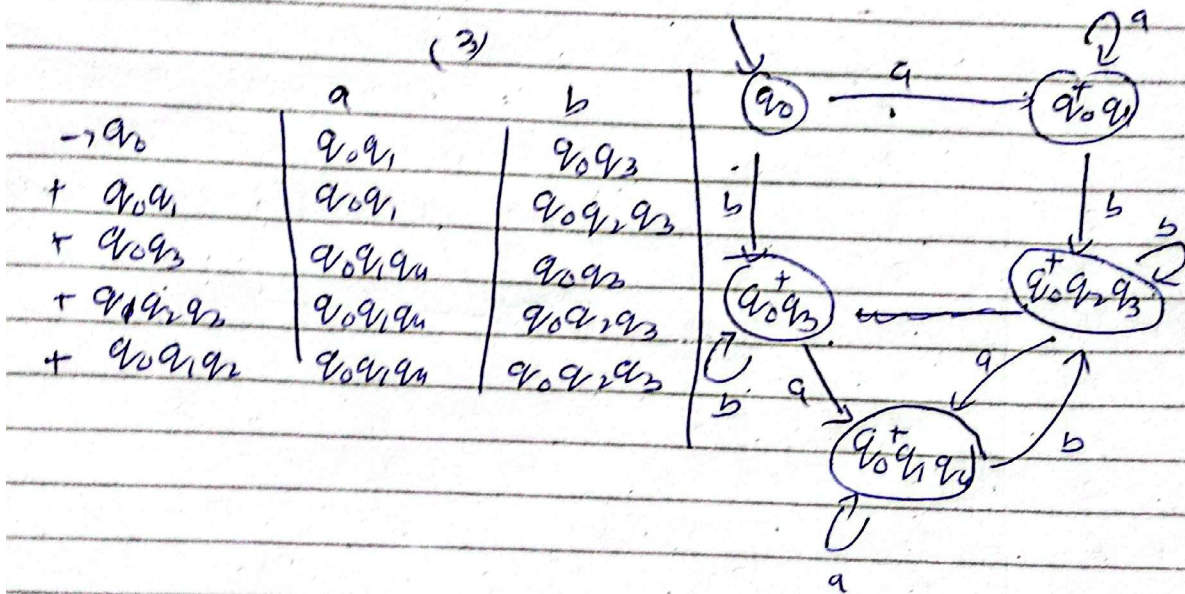 (3)
a b
→ q0 q0q1 q0q3
+ q0q1 q0q1 q0q2q3
+ q0q3 q0q1q4 q0q3
+ q0q2q3 q0q1q4 q0q2q3
+ q0q1q2 q0q1q4 q0q2q3
a
q0 a q0+q1
b b b
q0+q3 q0+q2q3
b a a b
q0+q1q4
a